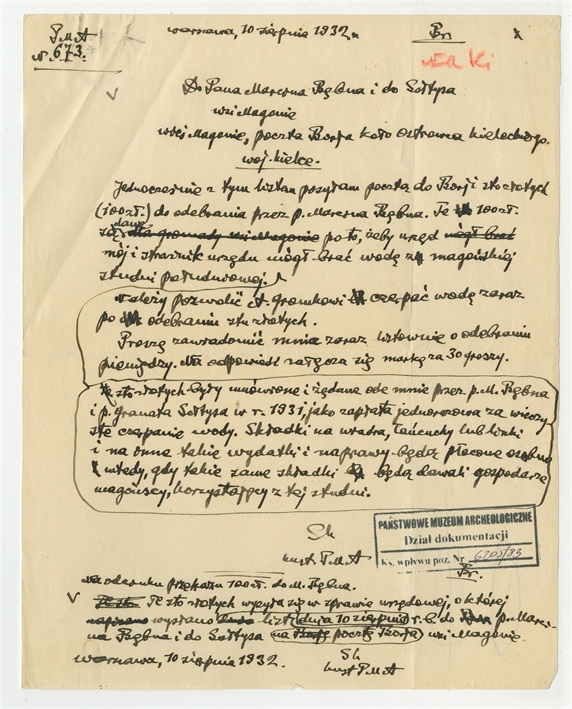 P.M.A
N. 673.
Warszawa, 10 sierpnia 1932 r.
Br.
Do Pana Marcina Bębna i do Sołtysa
wsi Magonie
w wsi Magonie, poczta Borja koło Ostrowca kieleckiego.
woj. kielce.
Jednocześnie z tym listem posyłam pocztą do Borji sto złotych
(100 zł.) do odebrania przez p. Marcina Bębna. Te 100 zł.
są dane dla gromady wsi Magonie po to, żeby urząd mógł brać
mój i strażnik urzędu mógł brać wodę z magońskiej
studni południowej.
Należy pozwolić st. Gromkowi czerpać wodę zaraz
po odebraniu stu złotych.
Proszę zawiadomić mnie zaraz listownie o odebraniu
pieniędzy. Na odpowiedź załącza się markę za 30 groszy.
Te sto złotych były umówione i żądane ode mnie przez p. M. Bębna
i p. Granata Sołtysa w r. 1931, jako zapłata jednorazowa za wieczy-
ste czerpanie wody. Składki na wiadra, łańcuchy lub linki
i na inne takie wydatki i naprawy będą płacone osobno
wtedy, gdy takie same składki będą dawali gospodarze
magońscy, korzystający z tej studni.
Sk
kust P.M.A
PAŃSTWOWE MUZEUM ARCHEOLOGICZNE
Dział dokumentacji
Ks. wpływu poz. Nr 6200/83
Br.
Na odcinku przekazu 100 zł. do M. Bębna.
Te sto Te sto złotych wysyła się w sprawie urzędowej, o której
napisano wysłano list dnia 10 sierpnia r. b. do p. Marci-
na Bębna i do Sołtysa (na pocztę Borja) wsi Magonie.
Warszawa, 10 sierpnia 1932.
Sk
kust P.M.A